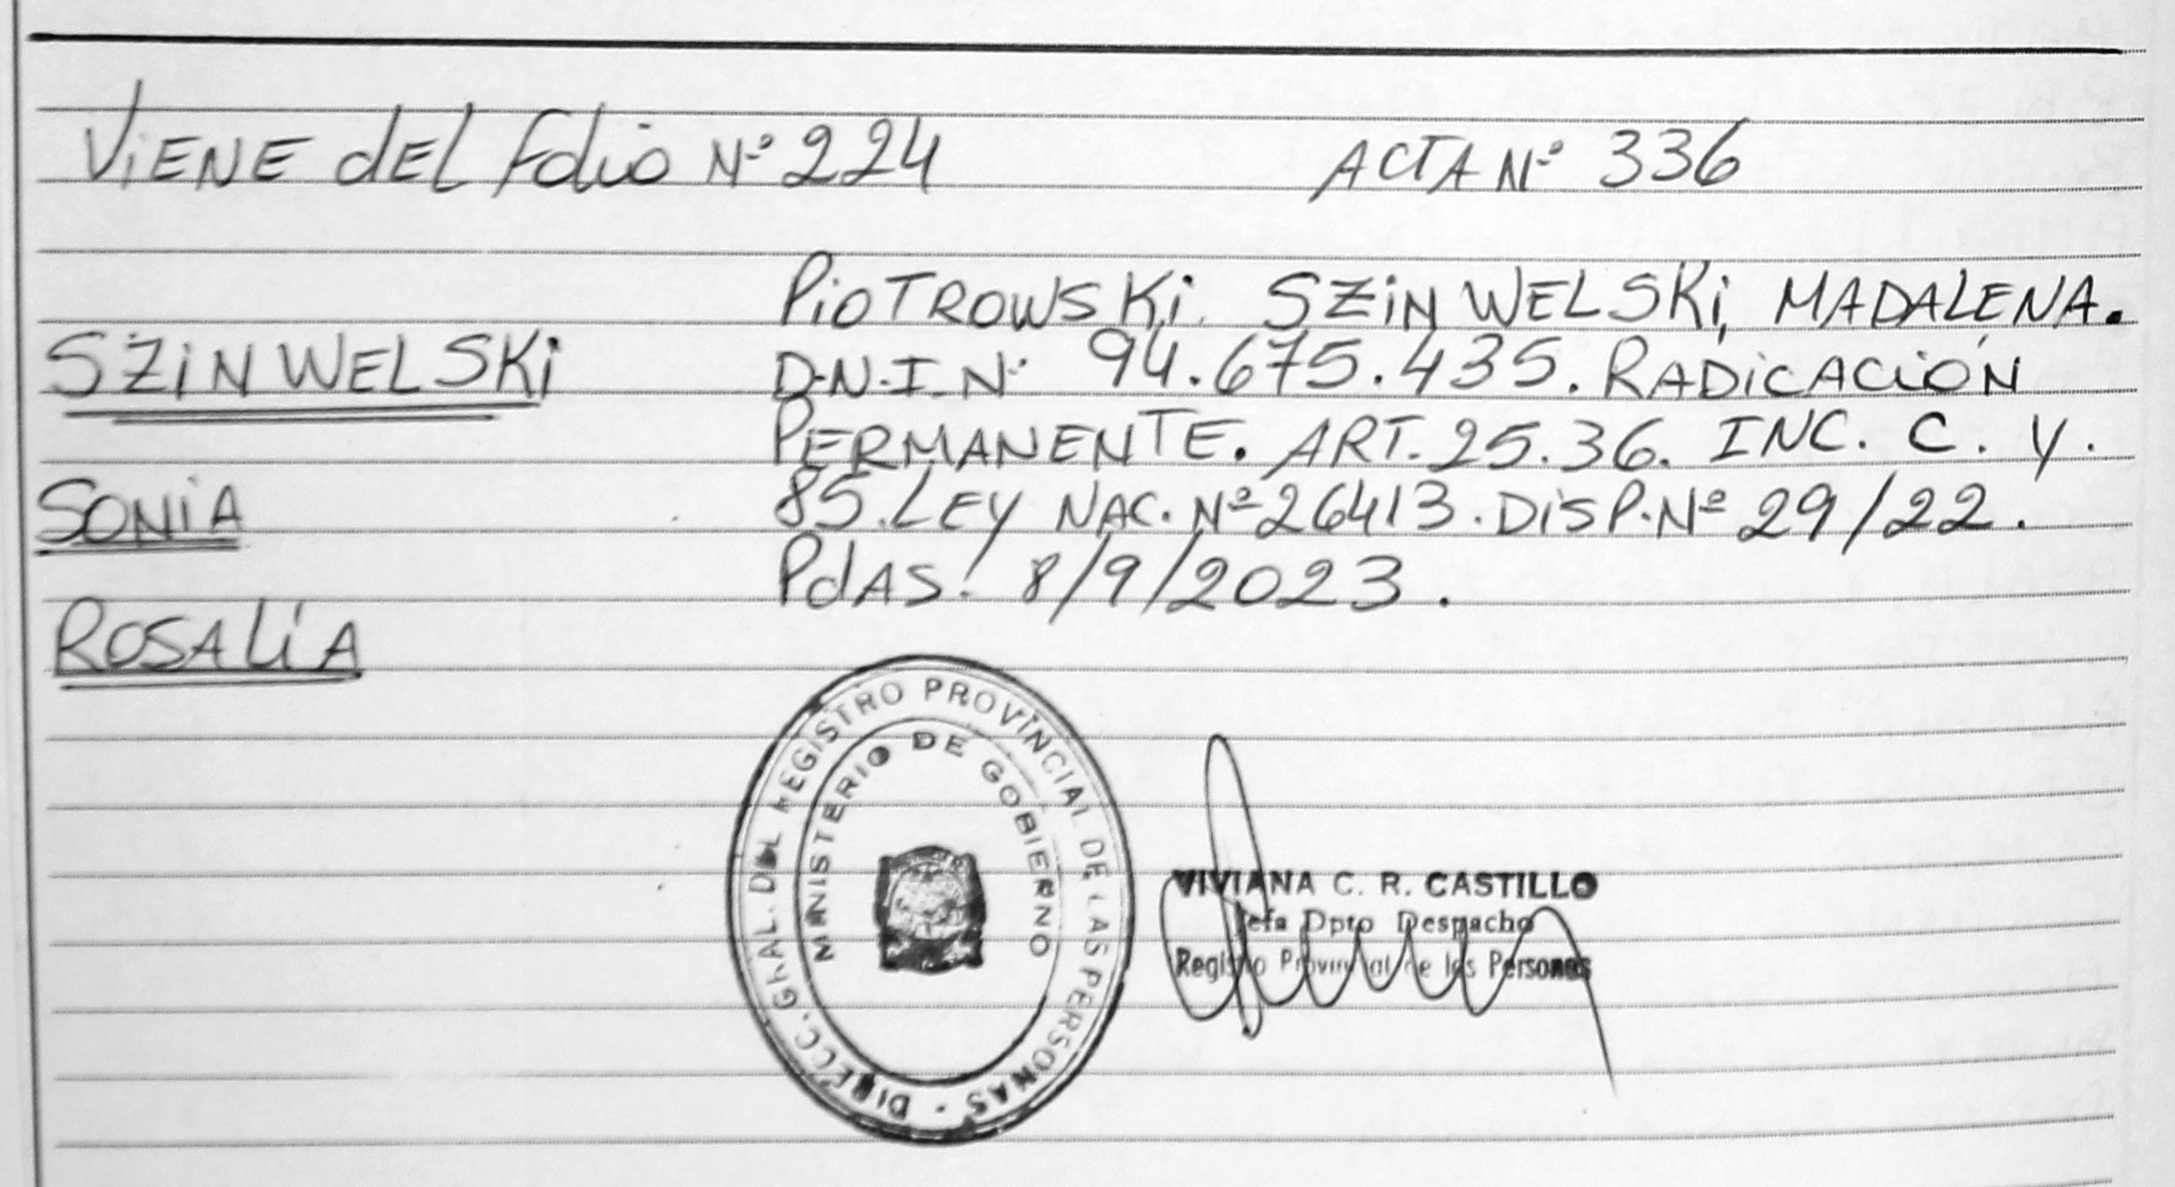 ViENE dEL folio Nº 224 ACTA Nº 336
PiOTROWSKi SZiNWELSKi, MADALENA.
SZiNWELSKi
D.N.I. Nº 94.675.435. RADiCACiÓN
PERMANENTE. ART. 25.36. INC. C. Y.
SONiA
85. LEY NAC. Nº 26413. DiSP. Nº 29/22.
PdAS! 8/9/2023.
ROSALíA
DIRECC. GRAL. DEL REGISTRO PROVINCIAL DE LAS PERSONAS -
MINISTERIO DE GOBIERNO
VIVIANA C. R. CASTILLO
Jefa Dpto Despacho
Registro Provincial de las Personas